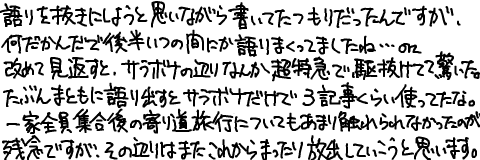 語りを抜きにしようと思いながら書いてたつもりだったんですが、
何だかんだで後半いつの間にか語りまくってましたね…orz
改めて見返すと、サラボナの辺りなんか超特急で駆抜けてて驚いた。
たぶんまともに語り出すとサラボナだけで3記事くらい使ってたな。
一家全員集合後の寄り道旅行についてもあまり触れられなかったのが
残念ですが、その辺りはまたこれからまったり放出していこうと思います。